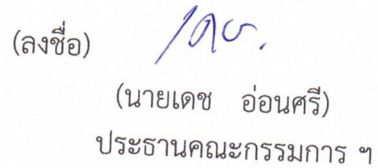 (ลงชื่อ)
(นายเดช อ่อนศรี)
ประธานคณะกรรมการ ฯ